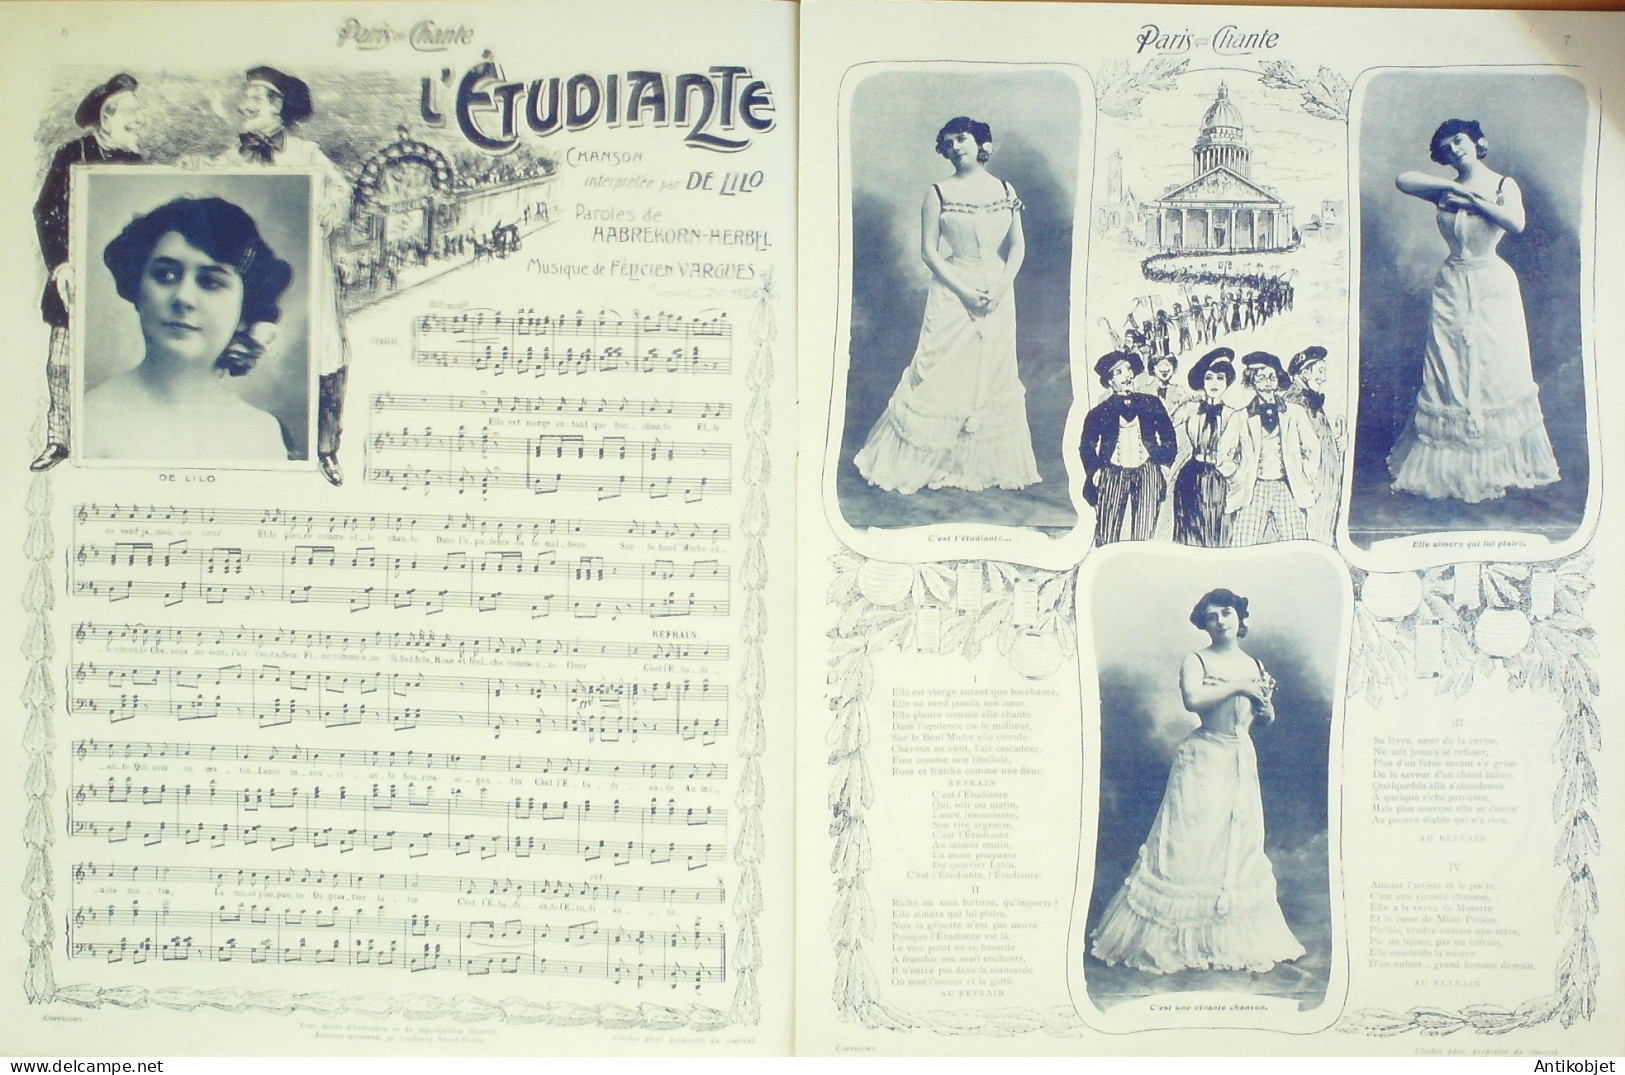 6
Paris qui Chante
L'ÉTUDIANTE
CHANSON
interprétée par DE LILO
Paroles de
HABREKORN-HERBEL
Musique de FÉLICIEN VARGUES
DE LILO
Elle est vierge autant que bacchante Elle
ne vend jamais son cœur Elle pleure comme elle chante Dans l'opulence ou le malheur Sur le boul' Miche el-
le circule Cheveux au vent, l'air cascadeur Fine comme une libellule, Rose et fraîche comme une fleur
REFRAIN
C'est l'Étudi-
ante Qui, soir ou matin, Lance insouciante Son rire argentin C'est l'Étudiante Au mi-
nois mutin, La muse pimpante Du quartier latin C'est l'Étudiante, l'Étudiante.
rit.
COPYRIGHT
Tous droits d'exécution et de reproduction réservés
Clichés phot. propriété du journal.
Paris qui Chante
7
C'est l'étudiante...
Elle aimera qui lui plaira.
I
Elle est vierge autant que bacchante,
Elle ne vend jamais son cœur,
Elle pleure comme elle chante
Dans l'opulence ou le malheur,
Sur le Boul'Miche elle circule
Cheveux au vent, l'air cascadeur,
Fine comme une libellule,
Rose et fraîche comme une fleur.
REFRAIN
C'est l'Étudiante
Qui, soir ou matin,
Lance, insouciante,
Son rire argentin,
C'est l'Étudiante
Au minois mutin,
La muse pimpante
Du quartier Latin,
C'est l'Étudiante, l'Étudiante.
II
Riche ou sans fortune, qu'importe!
Elle aimera qui lui plaira.
Non la grisette n'est pas morte
Puisque l'Étudiante est là.
Le vice point ne se hasarde
A franchir son seuil enchanté,
Il n'entre pas dans la mansarde
Où sont l'amour et la gaîté.
AU REFRAIN
C'est une vivante chanson.
III
Sa lèvre, sœur de la cerise,
Ne sait jamais se refuser,
Plus d'un futur savant s'y grise
De la saveur d'un chaud baiser.
Quelquefois elle s'abandonne
A quelque riche patricien,
Mais plus souvent elle se donne
Au pauvre diable qui n'a rien.
AU REFRAIN
IV
Aimant l'artiste et le poète,
C'est une vivante chanson,
Elle a la verve de Musette
Et le cœur de Mimi-Pinson.
Parfois, tendre comme une mère,
Par un baiser, par un refrain,
Elle ensoleille la misère
D'un enfant... grand homme demain.
AU REFRAIN
COPYRIGHT.
Clichés phot. propriété du journal.
Antikobjet